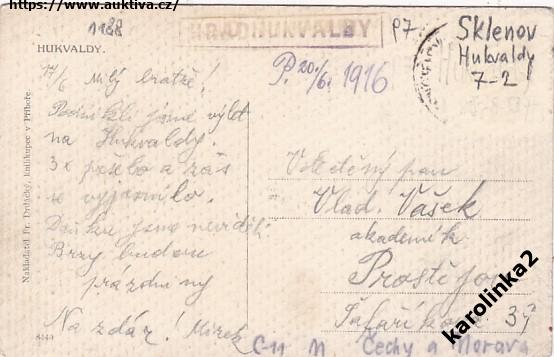 https://www.auktiva.cz/
1188
HRAD HUKVALDY
P7
Sklenov
Hukvaldy
7-2
HUKVALDY.
P. 20./6. 1916
17/6 Milý bratře!
Podnikli jsme výlet
na Hukvaldy.
3x pršelo a zás
se vyjasnilo.
jsme neviděli
Brzy budou
prázdniny
Na zdar! Mirek
Velectěný pan
Vlad. Vašek
akademik
Prostějov
39
Nakladatel Fr. knihkupec v Příboře.
Čechy a Morava
karolinka2